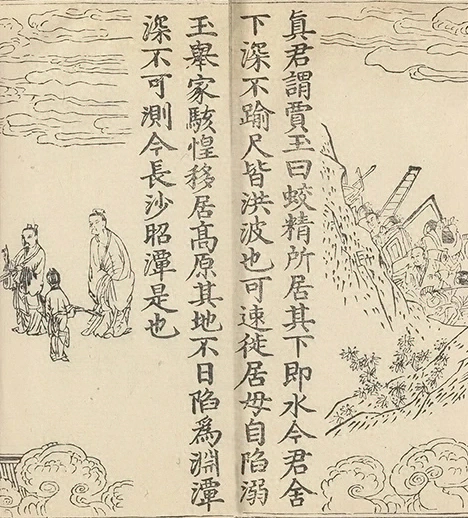 眞君謂賈玉曰蛟精所居其下即水今君舍
下深不踰尺皆洪波也可速徙居毋自陷溺
玉舉家駭惶移居高原其地不日陷爲淵潭
深不可測今長沙昭潭是也